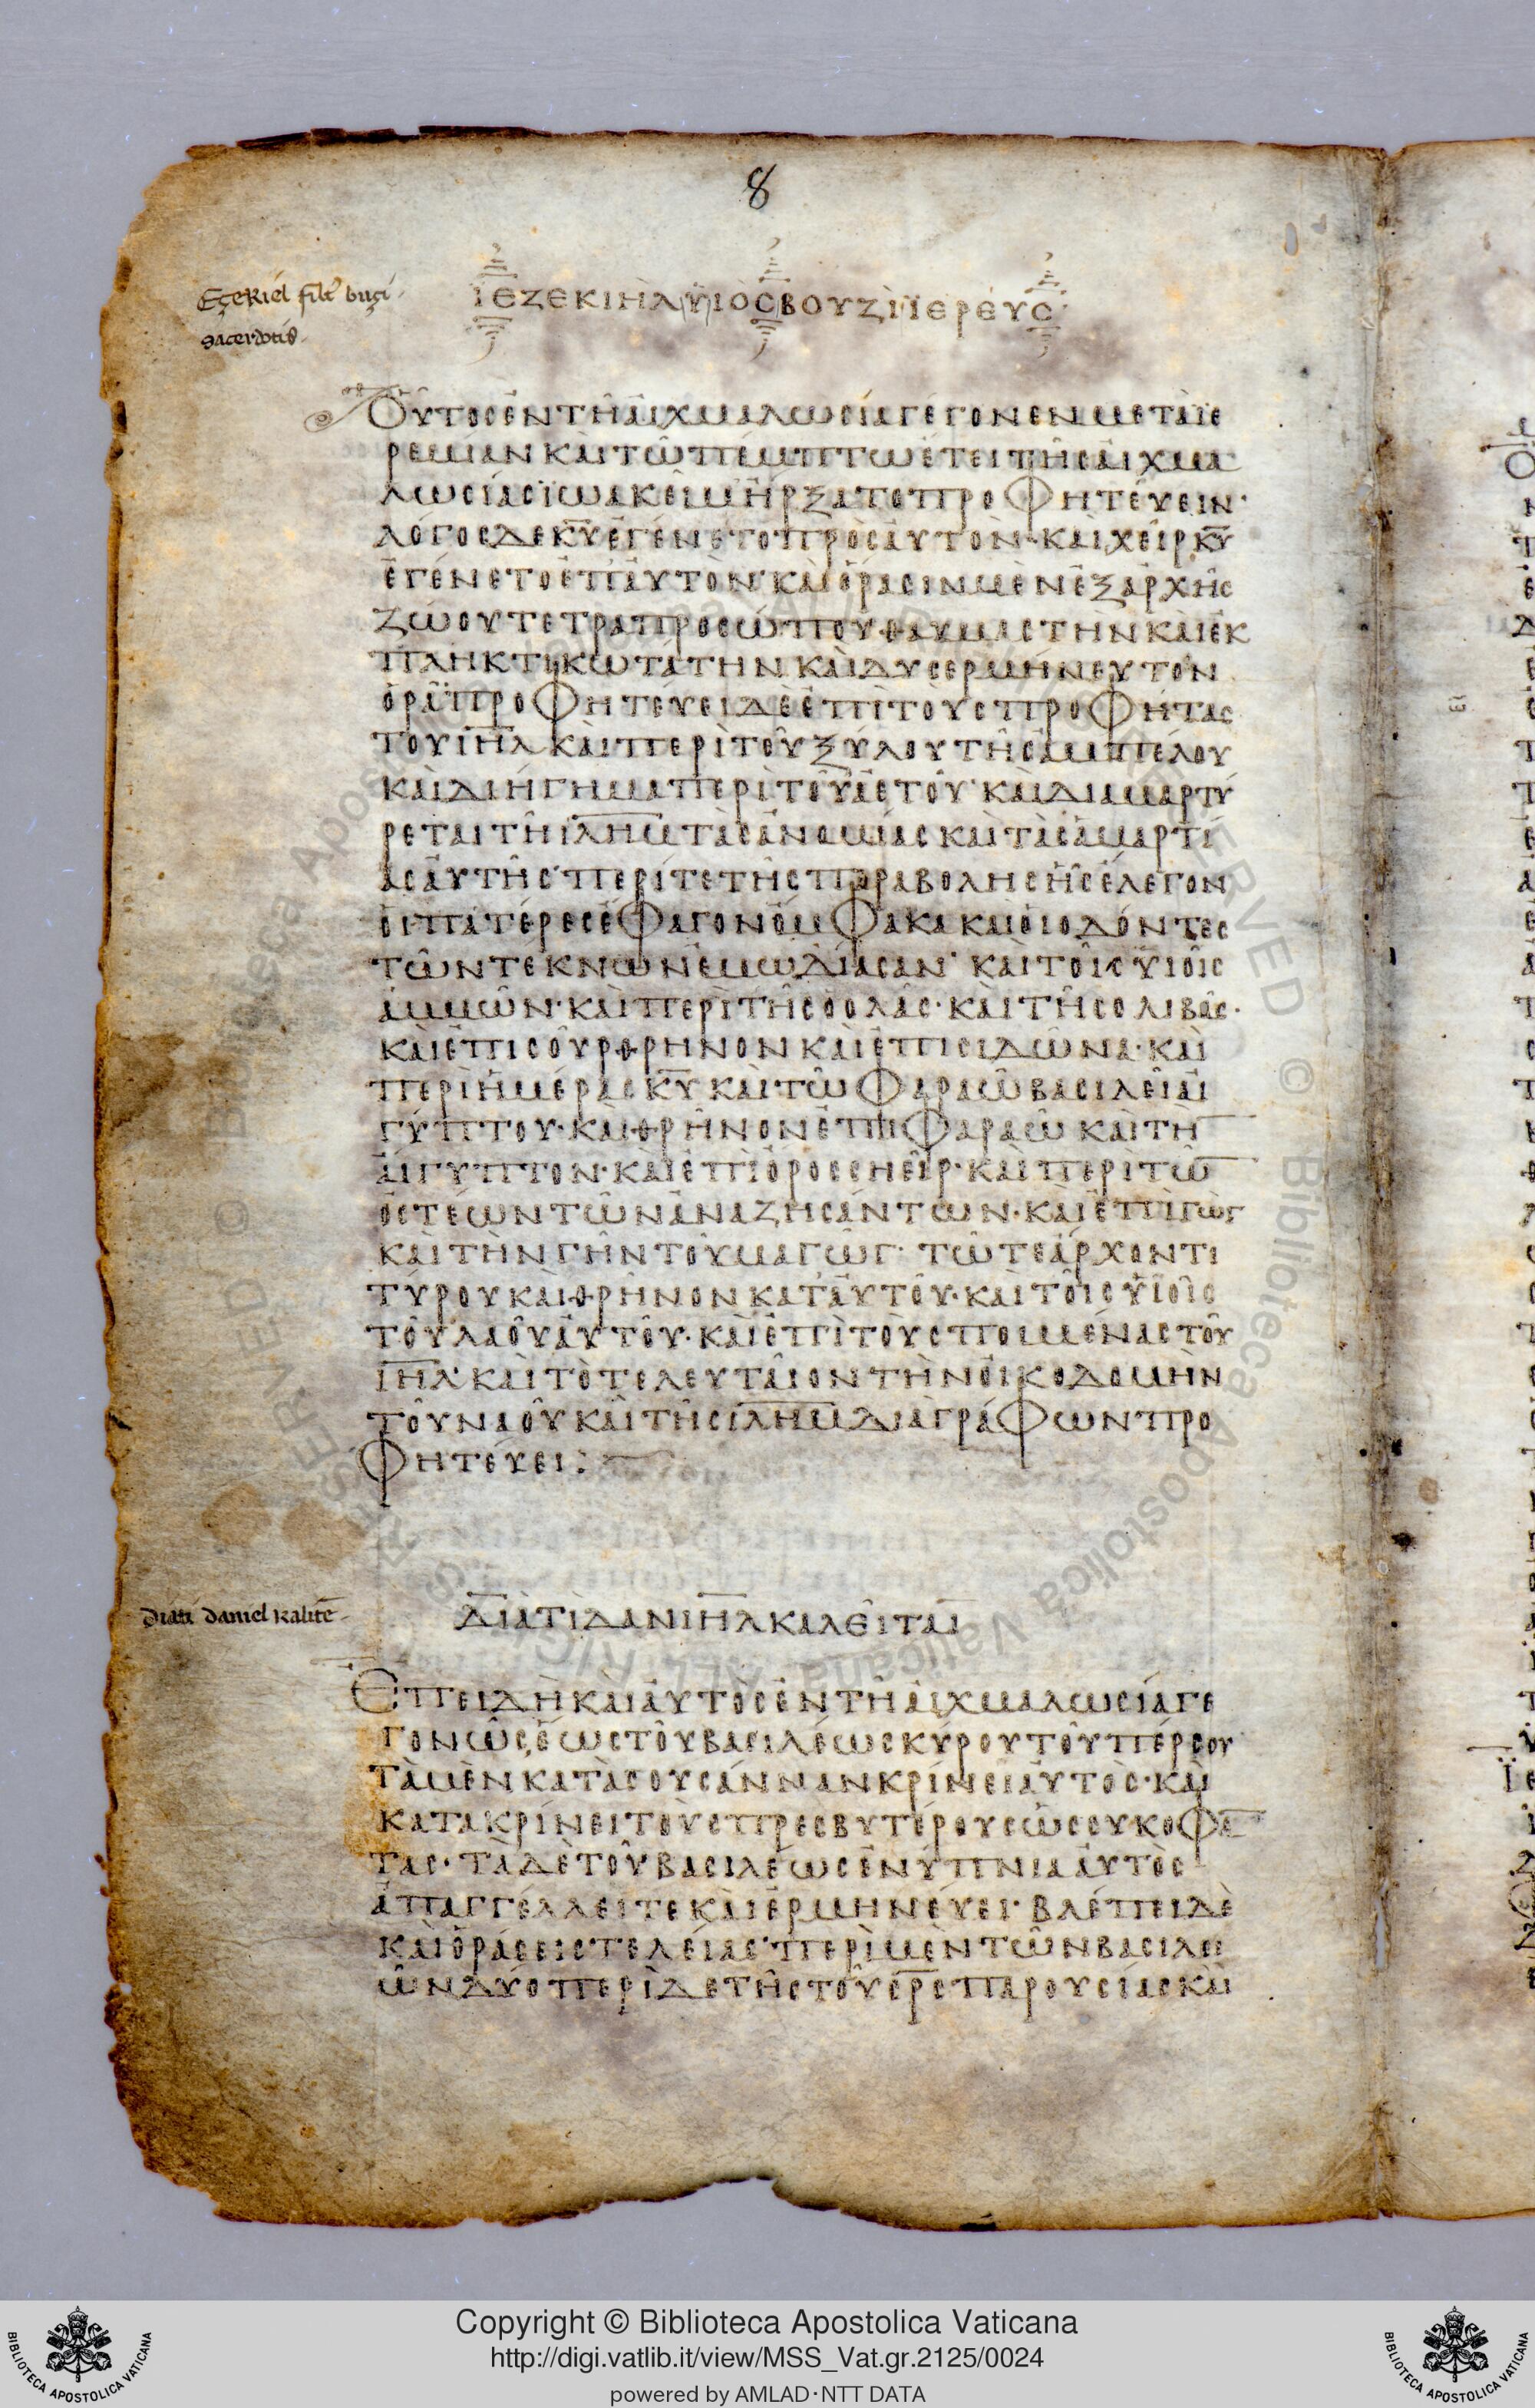 8
Ezekiel filiꝰ buzi
sacerdotis
ΙΕΖΕΚΙῊΛ ΥΙΟΣ ΒΟΥΖῚ ΙΕΡΕΎΣ
Οὗτος ἐν τῆ αἰχμαλωσία γέγονεν μετὰ ἰε
ρεμίαν καὶ τῶ πέμπτω ἔτει τῆς αἰχμα
λωσίας ϊωακεὶμ ἤρξατο προφητέυειν·
λόγος δε κ̅υ̅ ἐγένετο πρὸς ἀυτὸν· καὶ χεὶρ κ̅υ̅
ἐγένετο ἐπ' ἀυτὸν καὶ ὅρασιν μὲν ἐξ ἀρχῆς
ζώου τετραπροσώπου θαυμαστην καὶ ἐκ
πληκτικωτάτην καὶ δυσερμήνευτον
ὁρᾶ προφητέυει δὲ ἐπὶ τοὺς προφήτας
του ι̅η̅λ̅ καὶ περὶ τοῦ ξύλου τῆς ἀμπέλου
καὶ διήγημα περὶ τοῦ ἀετοῦ καὶ διαμαρτύ
ρεται τῆ ι̅λ̅η̅μ̅ τὰς ἀνομίας καὶ τὰς ἁμαρτί
ας ἀυτῆς περί τε τῆς παραβολης ἧς ἔλεγον
ὁι πατέρες ἔφαγον ὄμφακα και ὁι οδόντες
τῶν τέκνων ἐμωδίασαν· καὶ τοῖς ὑιοῖς
ἀμμῶν· καὶ περὶ τῆς οολᾶς· καὶ τῆς ολιβᾶς·
καὶ ἐπι σοὺρ θρηνον καὶ ἐπι σιδῶνα· καὶ
περὶ ἡμέρας κ̅υ̅ καὶ τῶ φαραῶ βασιλεῖ ἀι
γύπτου· καὶ θρῆνον ἐπὶ φαραὼ καὶ τὴ̅
ἄιγυπτον· καὶ ἐπὶ ὄρος σηεὶρ· καὶ περὶ τῶ̅
ὀστέων τῶν ἀναζησάντων· καὶ ἐπὶ γὼγ
καὶ τὴν γῆν τοῦ μαγώγ· τῶ τε ἄρχοντι
τύρου καὶ θρῆνον κατ' ἀυτοῦ· καὶ τοῖς ὑϊοῖς
τοῦ λαοῦ ἀυτοῦ· καὶ ἐπὶ τοὺς ποιμένας τοῦ
ι̅η̅λ̅ καὶ τὸ τελευταῖον τὴν ὀικοδομὴν
τοῦ ναοῦ καὶ τῆς ι̅λ̅η̅μ̅ διαγράφων προ
φητέυει :
diati daniel kalite
ΔΙΑΤΙ ΔΑΝΙΗΛ ΚΑΛΕῖΤΑΙ
Ἐπειδὴ καὶ ἀυτὸς ἐν τῆ ἀιχμαλωσία γε
γονὼς, ἕως τοῦ βασιλέως κύρου τοῦ πέρσου
τὰ μὲν κατὰ σουσάνναν κρίνει ἀυτος· καὶ
κατακρίνει τοὺς πρεσβυτέρους ὡς συκοφα̅
τας· τὰ δὲ τοῦ βασιλέως ἐνύπνια ἀυτὸς
ἀπαγγέλλει τε καὶ ἑρμηνέυει· βλέπει δὲ
καὶ ὁράσεις τελείας περὶ μὲν τῶν βασιλει
ῶν δύο περὶ δε τῆς τοῦ σ̅ρ̅ς̅ παρουσίας καὶ
Copyright © Biblioteca Apostolica Vaticana
http://digi.vatlib.it/view/MSS_Vat.gr.2125/0024
powered by AMLAD·NTT DATA
BIBLIOTECA APOSTOLICA VATICANA
BIBLIOTECA APOSTOLICA VATICANA